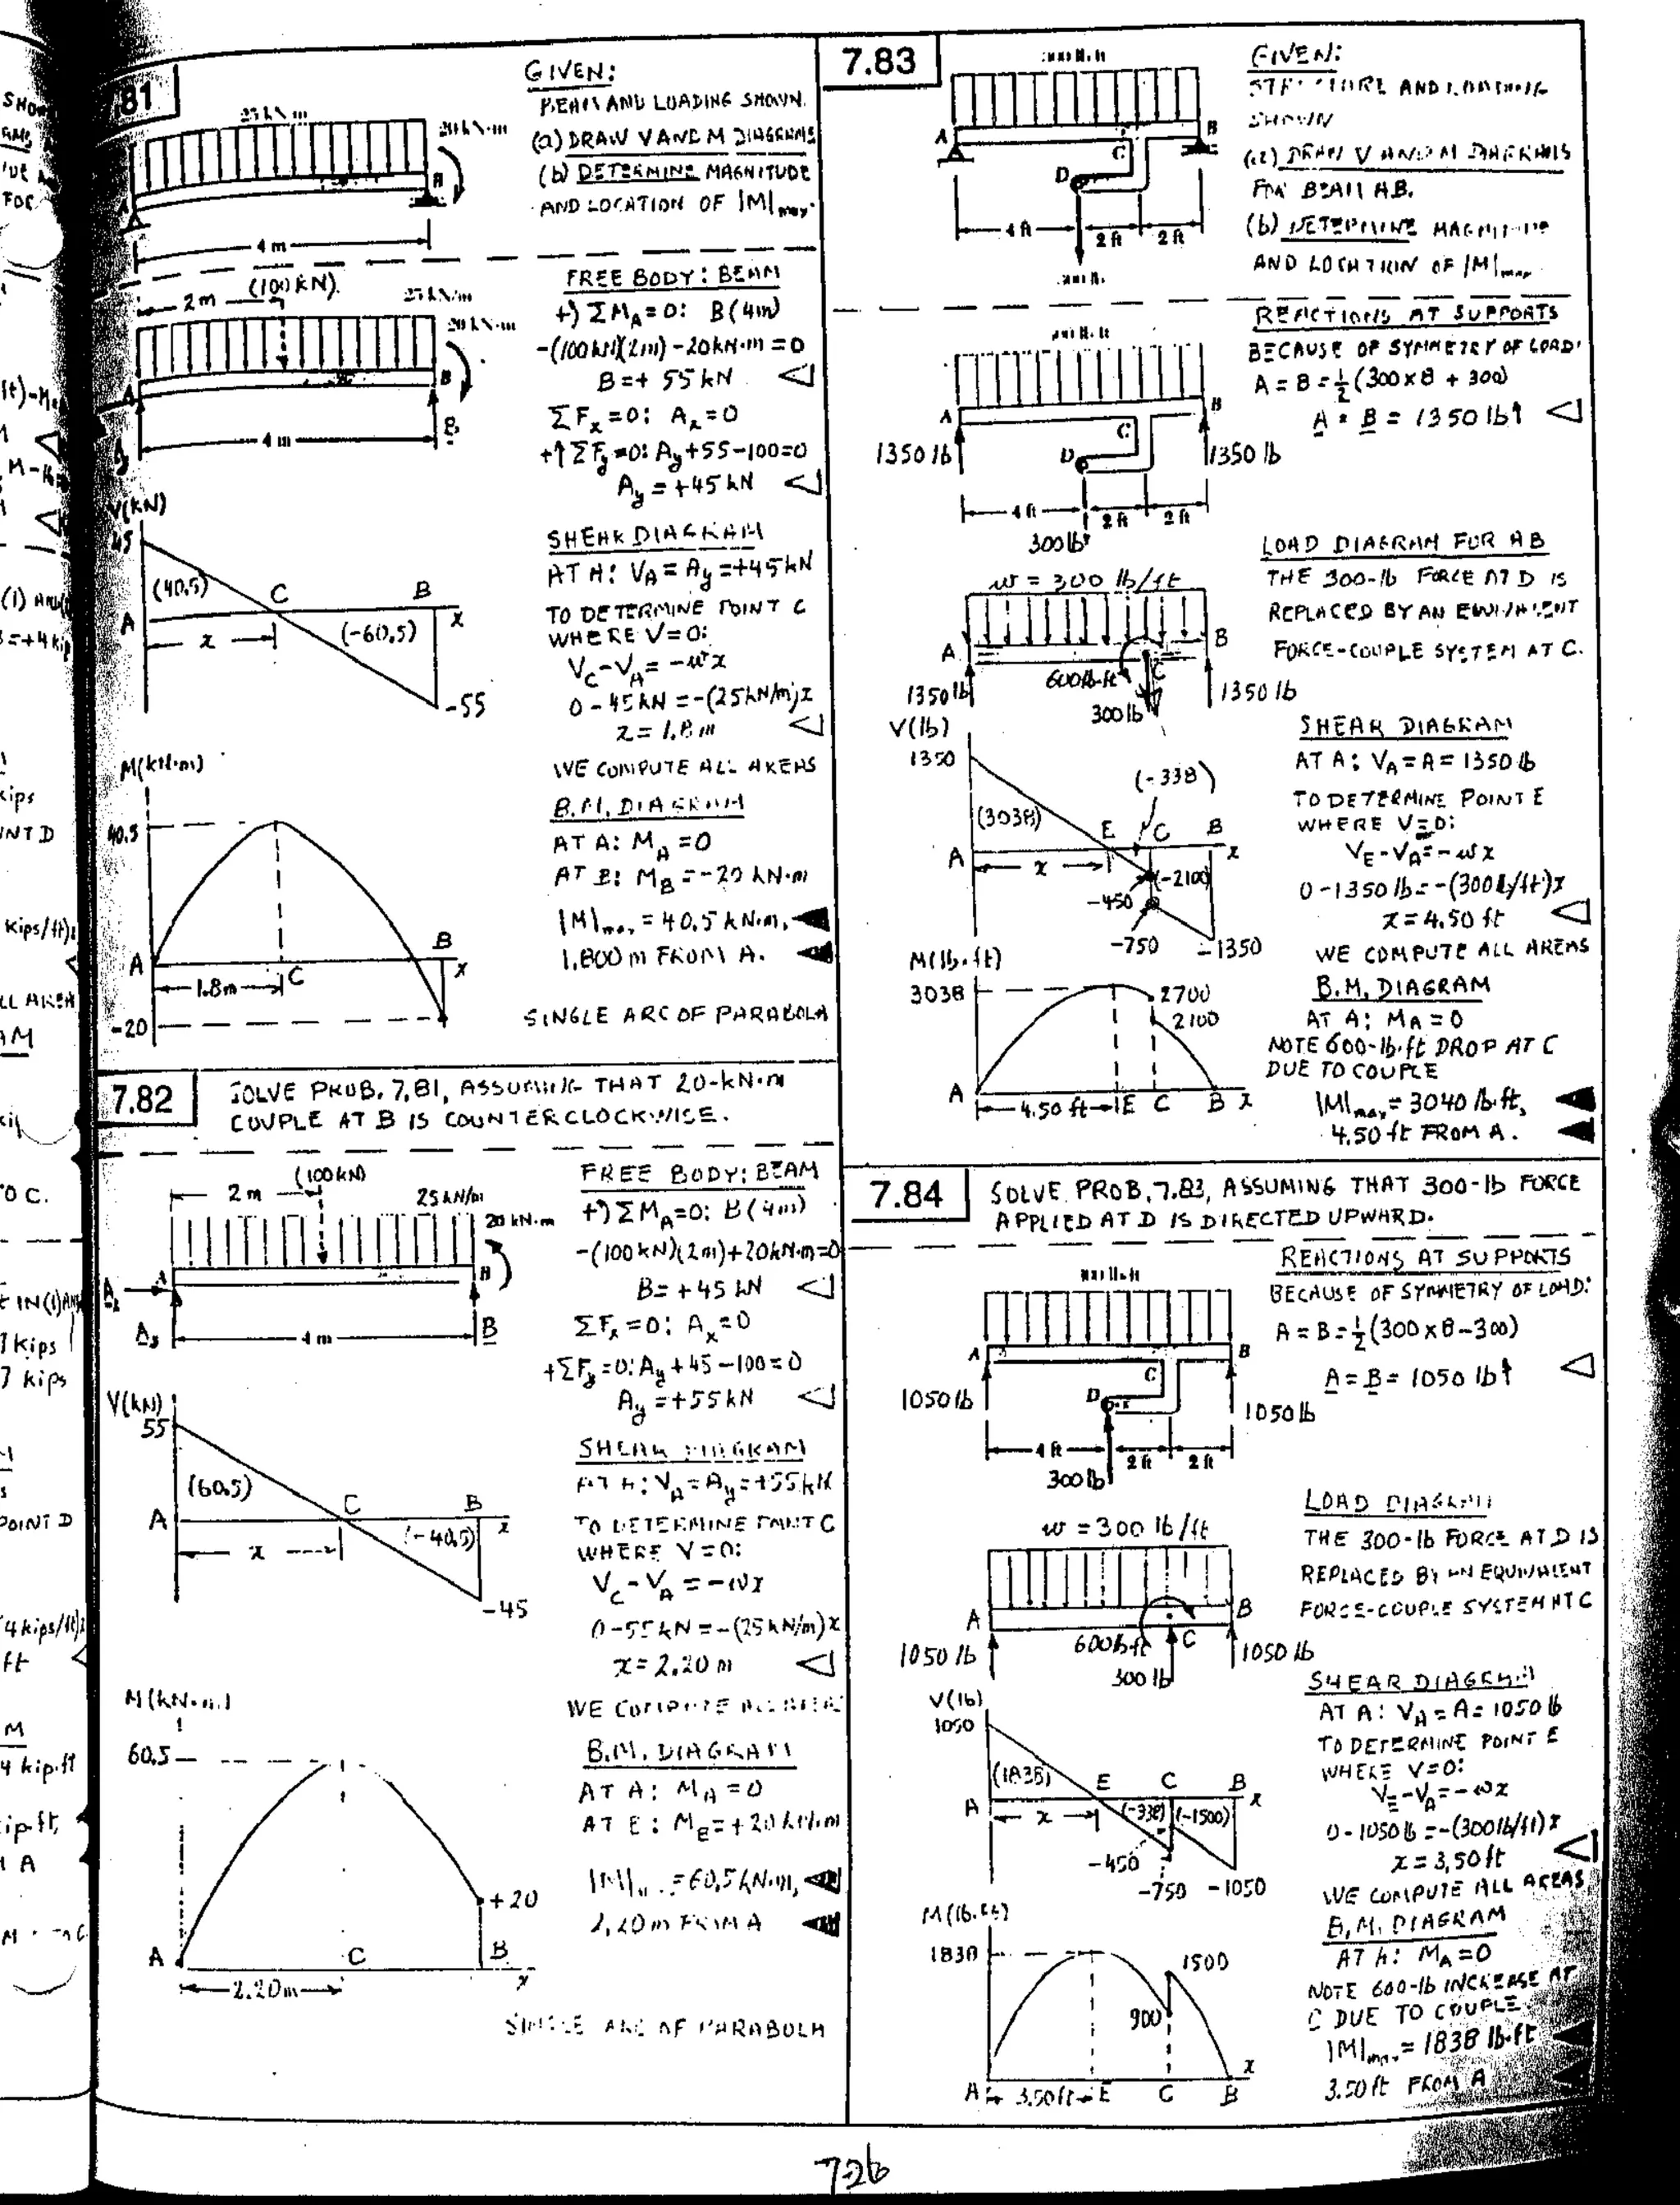 81
GIVEN:
BEAM AND LOADING SHOWN.
(a) DRAW V AND M DIAGRAMS
(b) DETERMINE MAGNITUDE
AND LOCATION OF |M|max.
25 kN/m
20 kN·m
A
B
4 m
2m
(100 kN).
25 kN/m
20 kN·m
A
B
Ay
B
4 m
FREE BODY: BEAM
+) ΣMA = 0: B(4m)
-(100 kN)(2m) -20kN·m = 0
B = + 55 kN
ΣFx = 0: Ax = 0
+↑ΣFy = 0: Ay +55-100=0
Ay = +45 kN
V(kN)
45
(40.5)
C
B
A
x
(-60.5)
x
-55
SHEAR DIAGRAM
AT A: VA = Ay = +45kN
TO DETERMINE POINT C
WHERE V=0:
VC-VA = -wx
0-45kN = -(25kN/m)x
x = 1.8 m
WE COMPUTE ALL AREAS
M(kN·m)
40.5
A
1.8m
C
B
x
-20
B.M. DIAGRAM
AT A: MA = 0
AT B: MB = -20 kN·m
|M|max = 40.5 kN·m,
1.800 m FROM A.
SINGLE ARC OF PARABOLA
7.82
SOLVE PROB. 7.81, ASSUMING THAT 20-kN·m
COUPLE AT B IS COUNTERCLOCKWISE.
(100 kN)
2 m
25 kN/m
20 kN·m
A
B
Ax
Ay
4 m
B
FREE BODY: BEAM
+) ΣMA=0: B(4m)
-(100 kN)(2m)+20kN·m=0
B= +45 kN
ΣFx = 0: Ax = 0
+ΣFy = 0: Ay +45-100=0
Ay = +55 kN
V(kN)
55
(60.5)
A
C
B
x
(-40.5)
x
-45
SHEAR DIAGRAM
AT A: VA = Ay = +55kN
TO DETERMINE POINT C
WHERE V=0:
VC-VA = -wx
0-55kN = -(25 kN/m)x
x = 2.20 m
WE COMPUTE ALL AREAS
M(kN·m)
60.5
+20
A
C
B
x
2.20m
B.M. DIAGRAM
AT A: MA = 0
AT B: MB = +20 kN·m
|M| = 60.5 kN·m,
2.20m FROM A
SINGLE ARC OF PARABOLA
7.83
GIVEN:
STRUCTURE AND LOADING
SHOWN
(a) DRAW V AND M DIAGRAMS
FOR BEAM AB.
(b) DETERMINE MAGNITUDE
AND LOCATION OF |M|max
A
B
C
D
4 ft
2 ft
2 ft
REACTIONS AT SUPPORTS
BECAUSE OF SYMMETRY OF LOAD:
A = B = 1/2 (300×8 + 300)
A = B = 1350 lb↑
A
B
C
D
1350 lb
1350 lb
4 ft
2 ft
2 ft
300 lb
LOAD DIAGRAM FOR AB
THE 300-lb FORCE AT D IS
REPLACED BY AN EQUIVALENT
FORCE-COUPLE SYSTEM AT C.
w = 300 lb/ft
A
B
600 lb-ft
C
1350 lb
300 lb
1350 lb
V(lb)
1350
(-338)
(3038)
E
C
B
A
x
x
(-2100)
-450
-750
-1350
SHEAR DIAGRAM
AT A: VA = A = 1350 lb
TO DETERMINE POINT E
WHERE V=0:
VE-VA = -wx
0-1350 lb = -(300 lb/ft)x
x = 4.50 ft
WE COMPUTE ALL AREAS
M(lb·ft)
3038
2700
2100
A
4.50 ft
E
C
B
x
B.M. DIAGRAM
AT A: MA = 0
NOTE 600-lb·ft DROP AT C
DUE TO COUPLE
|M|max = 3040 lb·ft,
4.50 ft FROM A.
7.84
SOLVE PROB. 7.83, ASSUMING THAT 300-lb FORCE
APPLIED AT D IS DIRECTED UPWARD.
REACTIONS AT SUPPORTS
BECAUSE OF SYMMETRY OF LOAD:
A = B = 1/2 (300×8-300)
A = B = 1050 lb↑
A
B
C
D
1050 lb
1050 lb
4 ft
2 ft
2 ft
300 lb
LOAD DIAGRAM
THE 300-lb FORCE AT D IS
REPLACED BY AN EQUIVALENT
FORCE-COUPLE SYSTEM AT C
w = 300 lb/ft
A
B
600 lb·ft
C
1050 lb
300 lb
1050 lb
V(lb)
1050
(1838)
E
C
B
A
x
x
(-338)
(-1500)
-450
-750
-1050
SHEAR DIAGRAM
AT A: VA = A = 1050 lb
TO DETERMINE POINT E
WHERE V=0:
VE-VA = -wx
0-1050 lb = -(300 lb/ft)x
x = 3.50 ft
WE COMPUTE ALL AREAS
M(lb·ft)
1838
1500
900
A
3.50 ft
E
C
B
x
B.M. DIAGRAM
AT A: MA = 0
NOTE 600-lb INCREASE AT
C DUE TO COUPLE
|M|max = 1838 lb·ft
3.50 ft FROM A
726